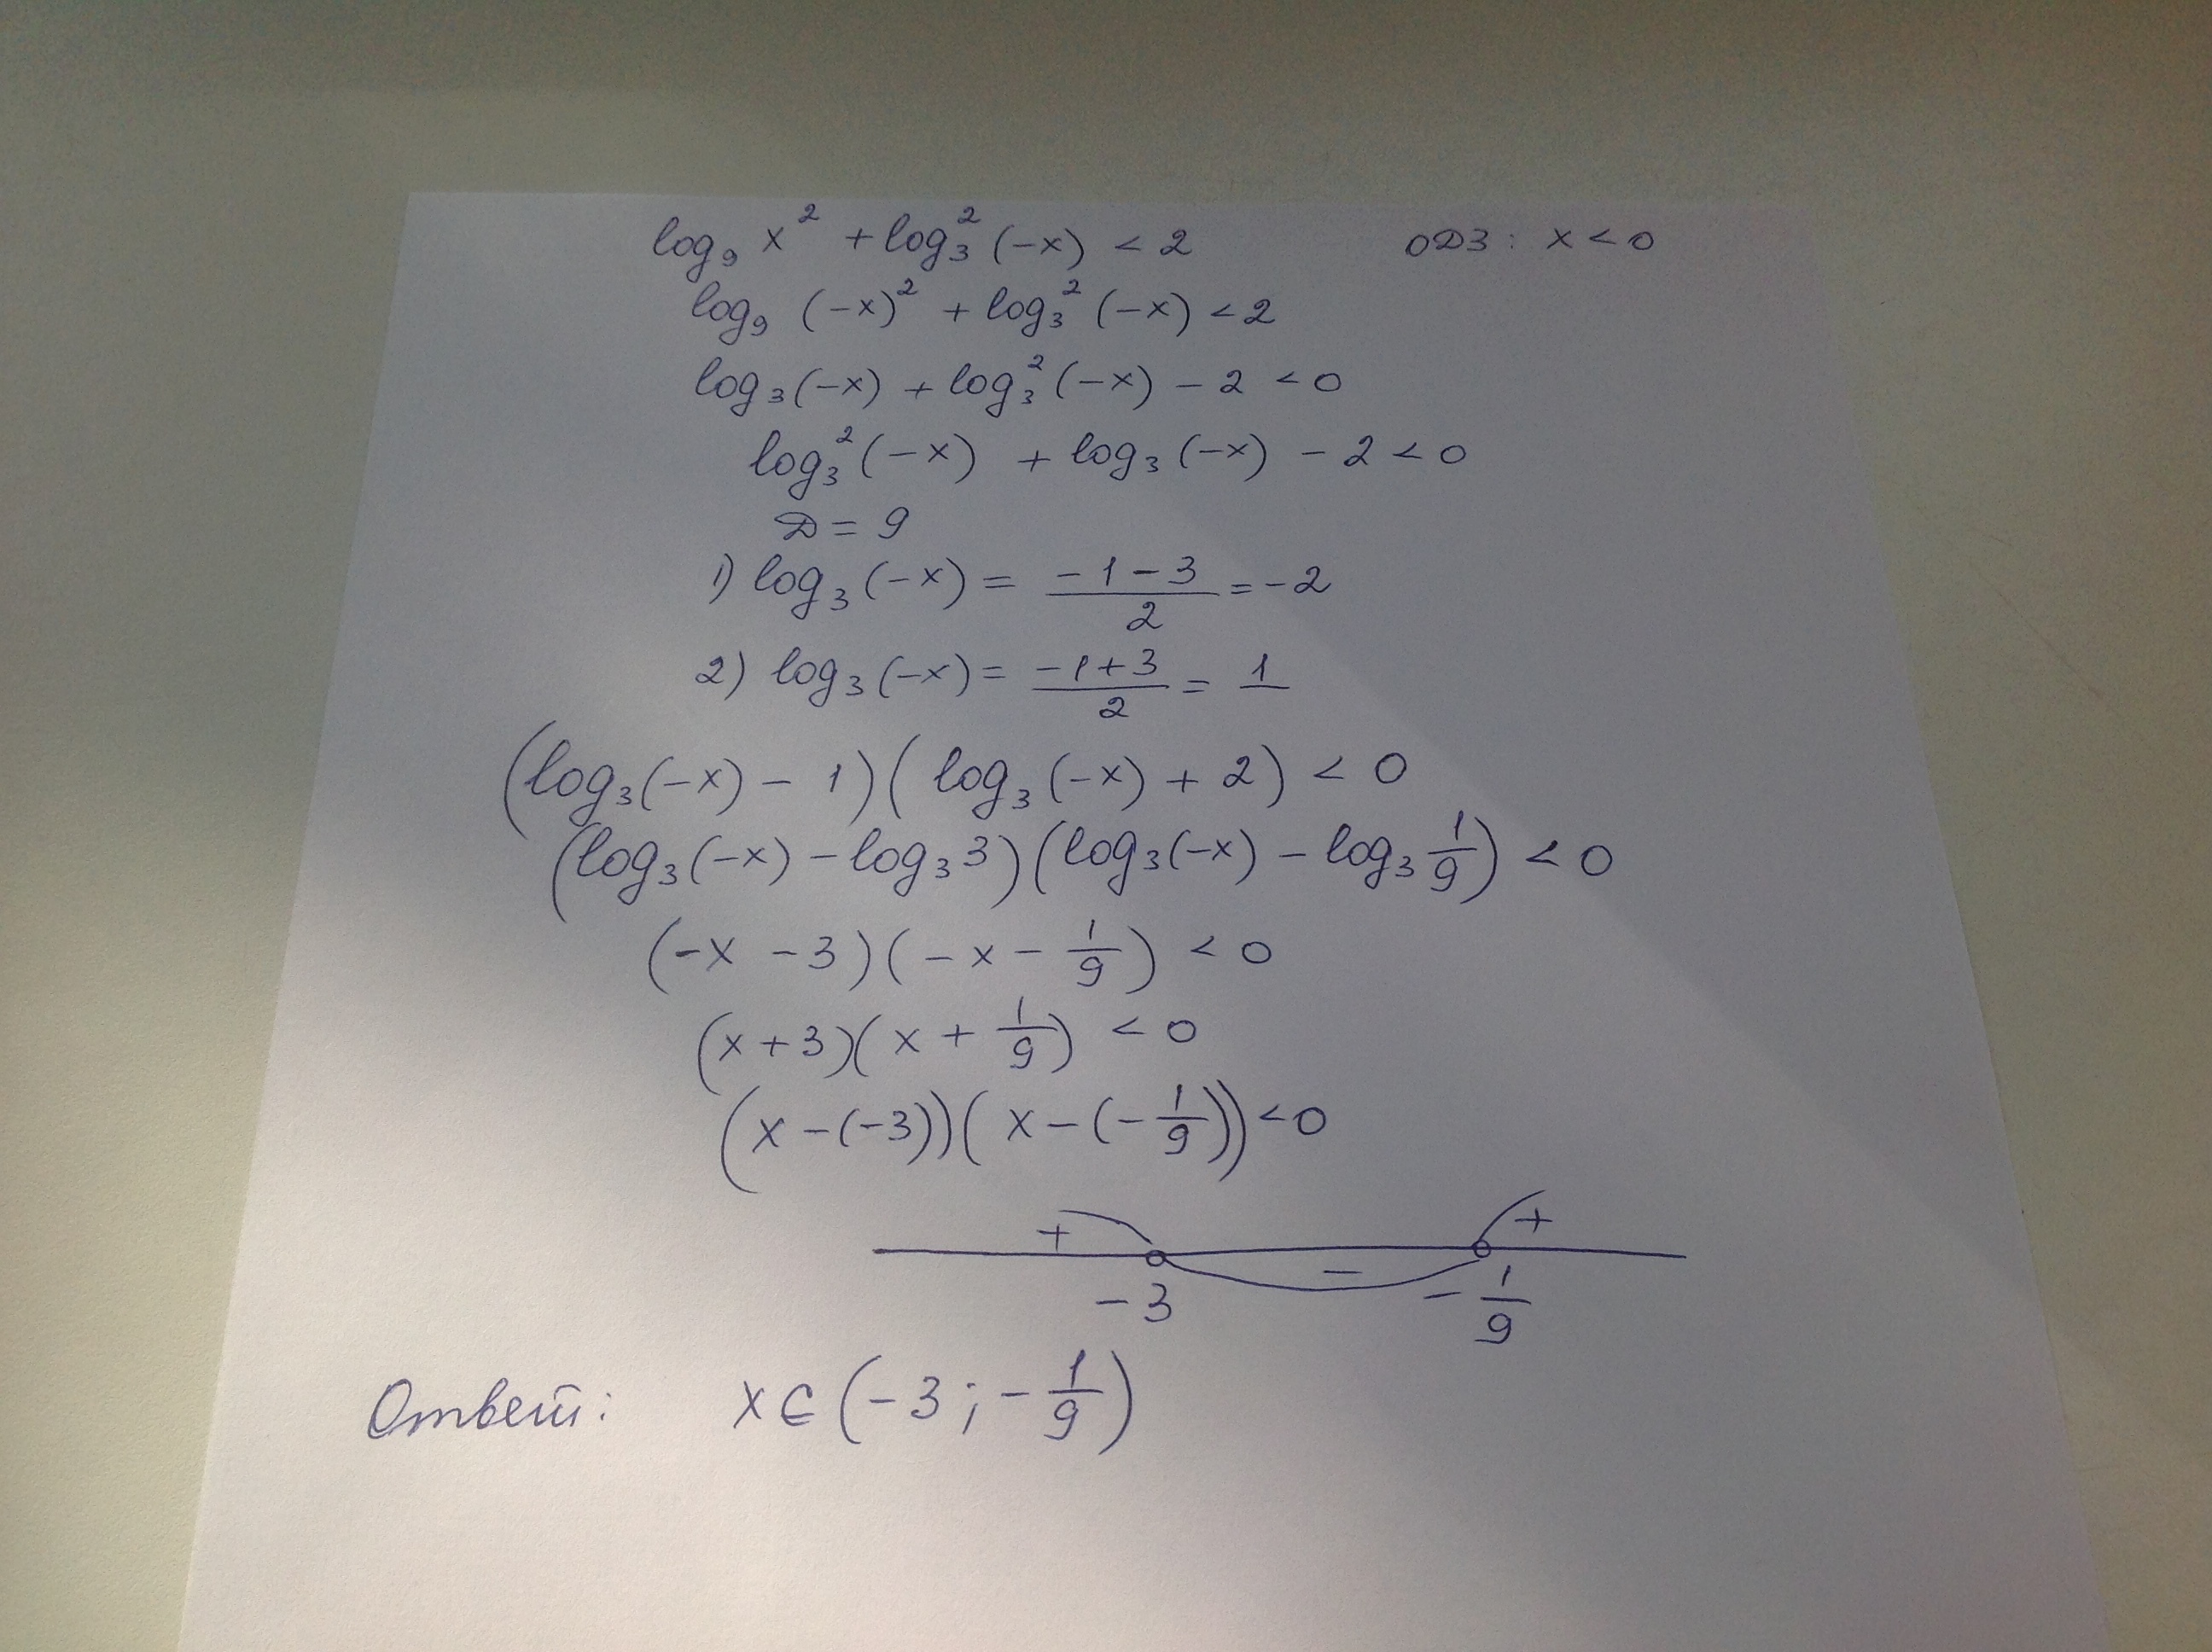 log₉ x² + log₃² (-x) < 2 ОДЗ: x < 0
log₉ (-x)² + log₃² (-x) < 2
log₃(-x) + log₃² (-x) - 2 < 0
log₃² (-x) + log₃ (-x) - 2 < 0
D = 9
1) log₃ (-x) = (-1-3)/2 = -2
2) log₃ (-x) = (-1+3)/2 = 1
(log₃(-x) - 1)(log₃ (-x) + 2) < 0
(log₃(-x) - log₃ 3)(log₃(-x) - log₃ 1/9) < 0
(-x - 3)(-x - 1/9) < 0
(x + 3)(x + 1/9) < 0
(x - (-3))(x - (-1/9)) < 0
+ - +
-3 -1/9
Ответ: x ∈ (-3; -1/9)